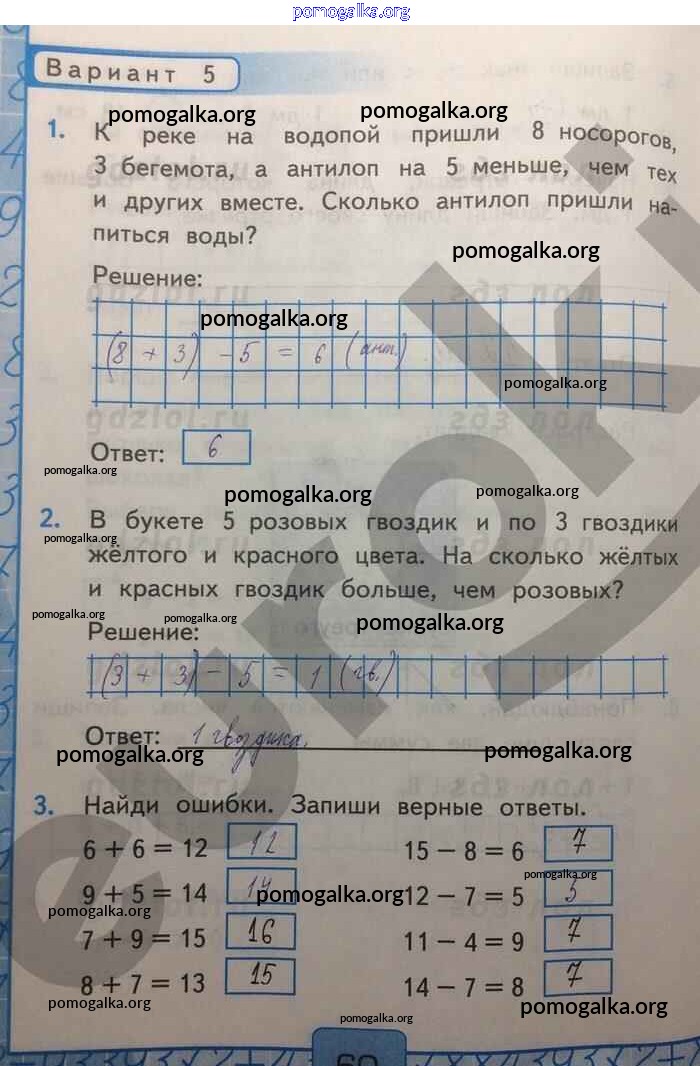 pomogalka.org
Вариант 5
pomogalka.org pomogalka.org
1. К реке на водопой пришли 8 носорогов,
3 бегемота, а антилоп на 5 меньше, чем тех
и других вместе. Сколько антилоп пришли на-
питься воды?
pomogalka.org
Решение:
pomogalka.org
(8 + 3) - 5 = 6 (ант.)
pomogalka.org
Ответ: 6
pomogalka.org
pomogalka.org pomogalka.org
2. В букете 5 розовых гвоздик и по 3 гвоздики
pomogalka.org
жёлтого и красного цвета. На сколько жёлтых
и красных гвоздик больше, чем розовых?
pomogalka.org pomogalka.org pomogalka.org
Решение:
(3 + 3) - 5 = 1 (гв.)
Ответ: 1 гвоздика.
pomogalka.org pomogalka.org
3. Найди ошибки. Запиши верные ответы.
6 + 6 = 12 12 15 − 8 = 6 7
pomogalka.org
9 + 5 = 14 14 12 − 7 = 5 5
pomogalka.org pomogalka.org
pomogalka.org
7 + 9 = 15 16 11 − 4 = 9 7
8 + 7 = 13 15 14 − 7 = 8 7
pomogalka.org pomogalka.org
pomogalka.org
euroki